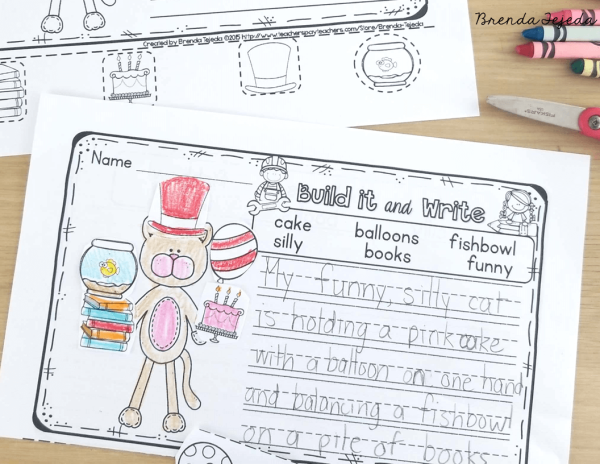 Brenda Tejeda
Created by Brenda Tejeda ©2015 http://www.teacherspayteachers.com/Store/Brenda-Tejeda
Name
Build it and Write
cake balloons fishbowl
silly books funny
My funny, silly cat
is holding a pink cake
with a balloon on one hand
and balancing a fishbowl
on a pile of books